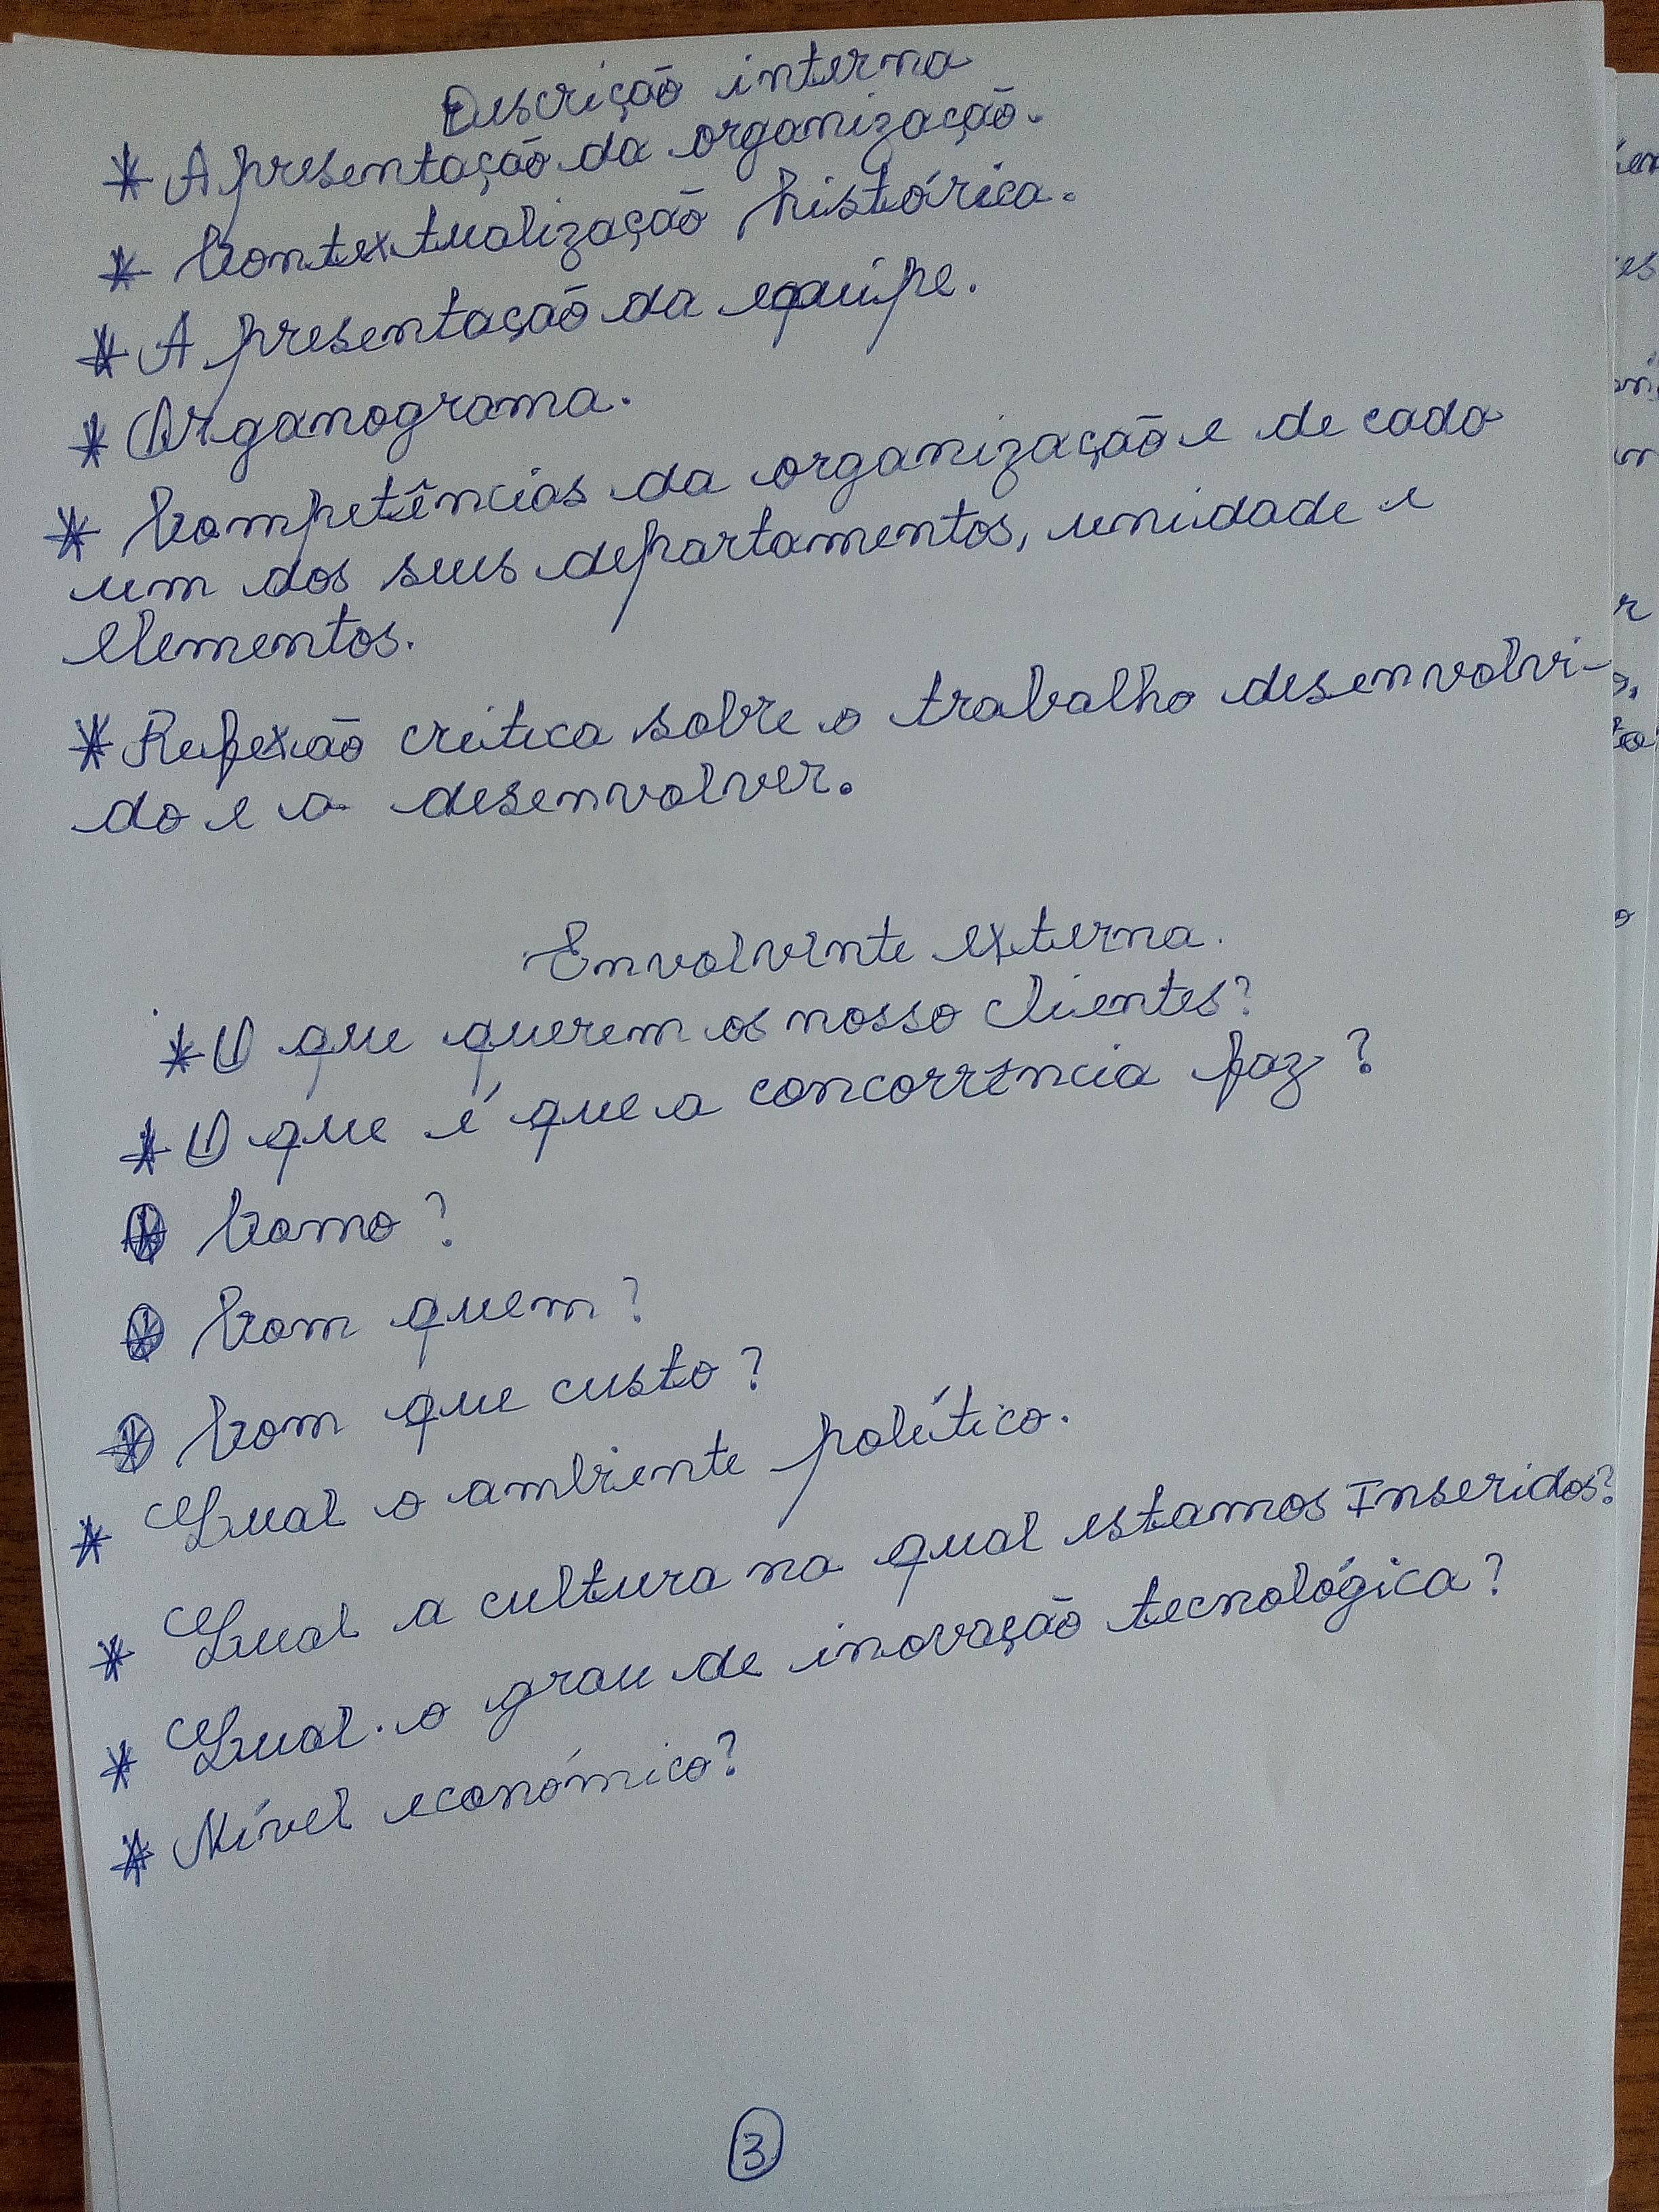 Descrição interna
* Apresentação da organização.
* Contextualização histórica.
* Apresentação da equipe.
* Organograma.
* Competências da organização e de cada
um dos seus departamentos, unidade e
elementos.
* Refexão critica sobre o trabalho desenvolvi-
do e a desenvolver.
Envolvente externa.
* O que querem os nosso clientes?
* O que é que a concorrência faz?
* Como?
* Com quem?
* Com que custo?
* Qual o ambiente político.
* Qual a cultura na qual estamos Inseridos?
* Qual. o grau de inovação tecnológica?
* Nível económico?
3